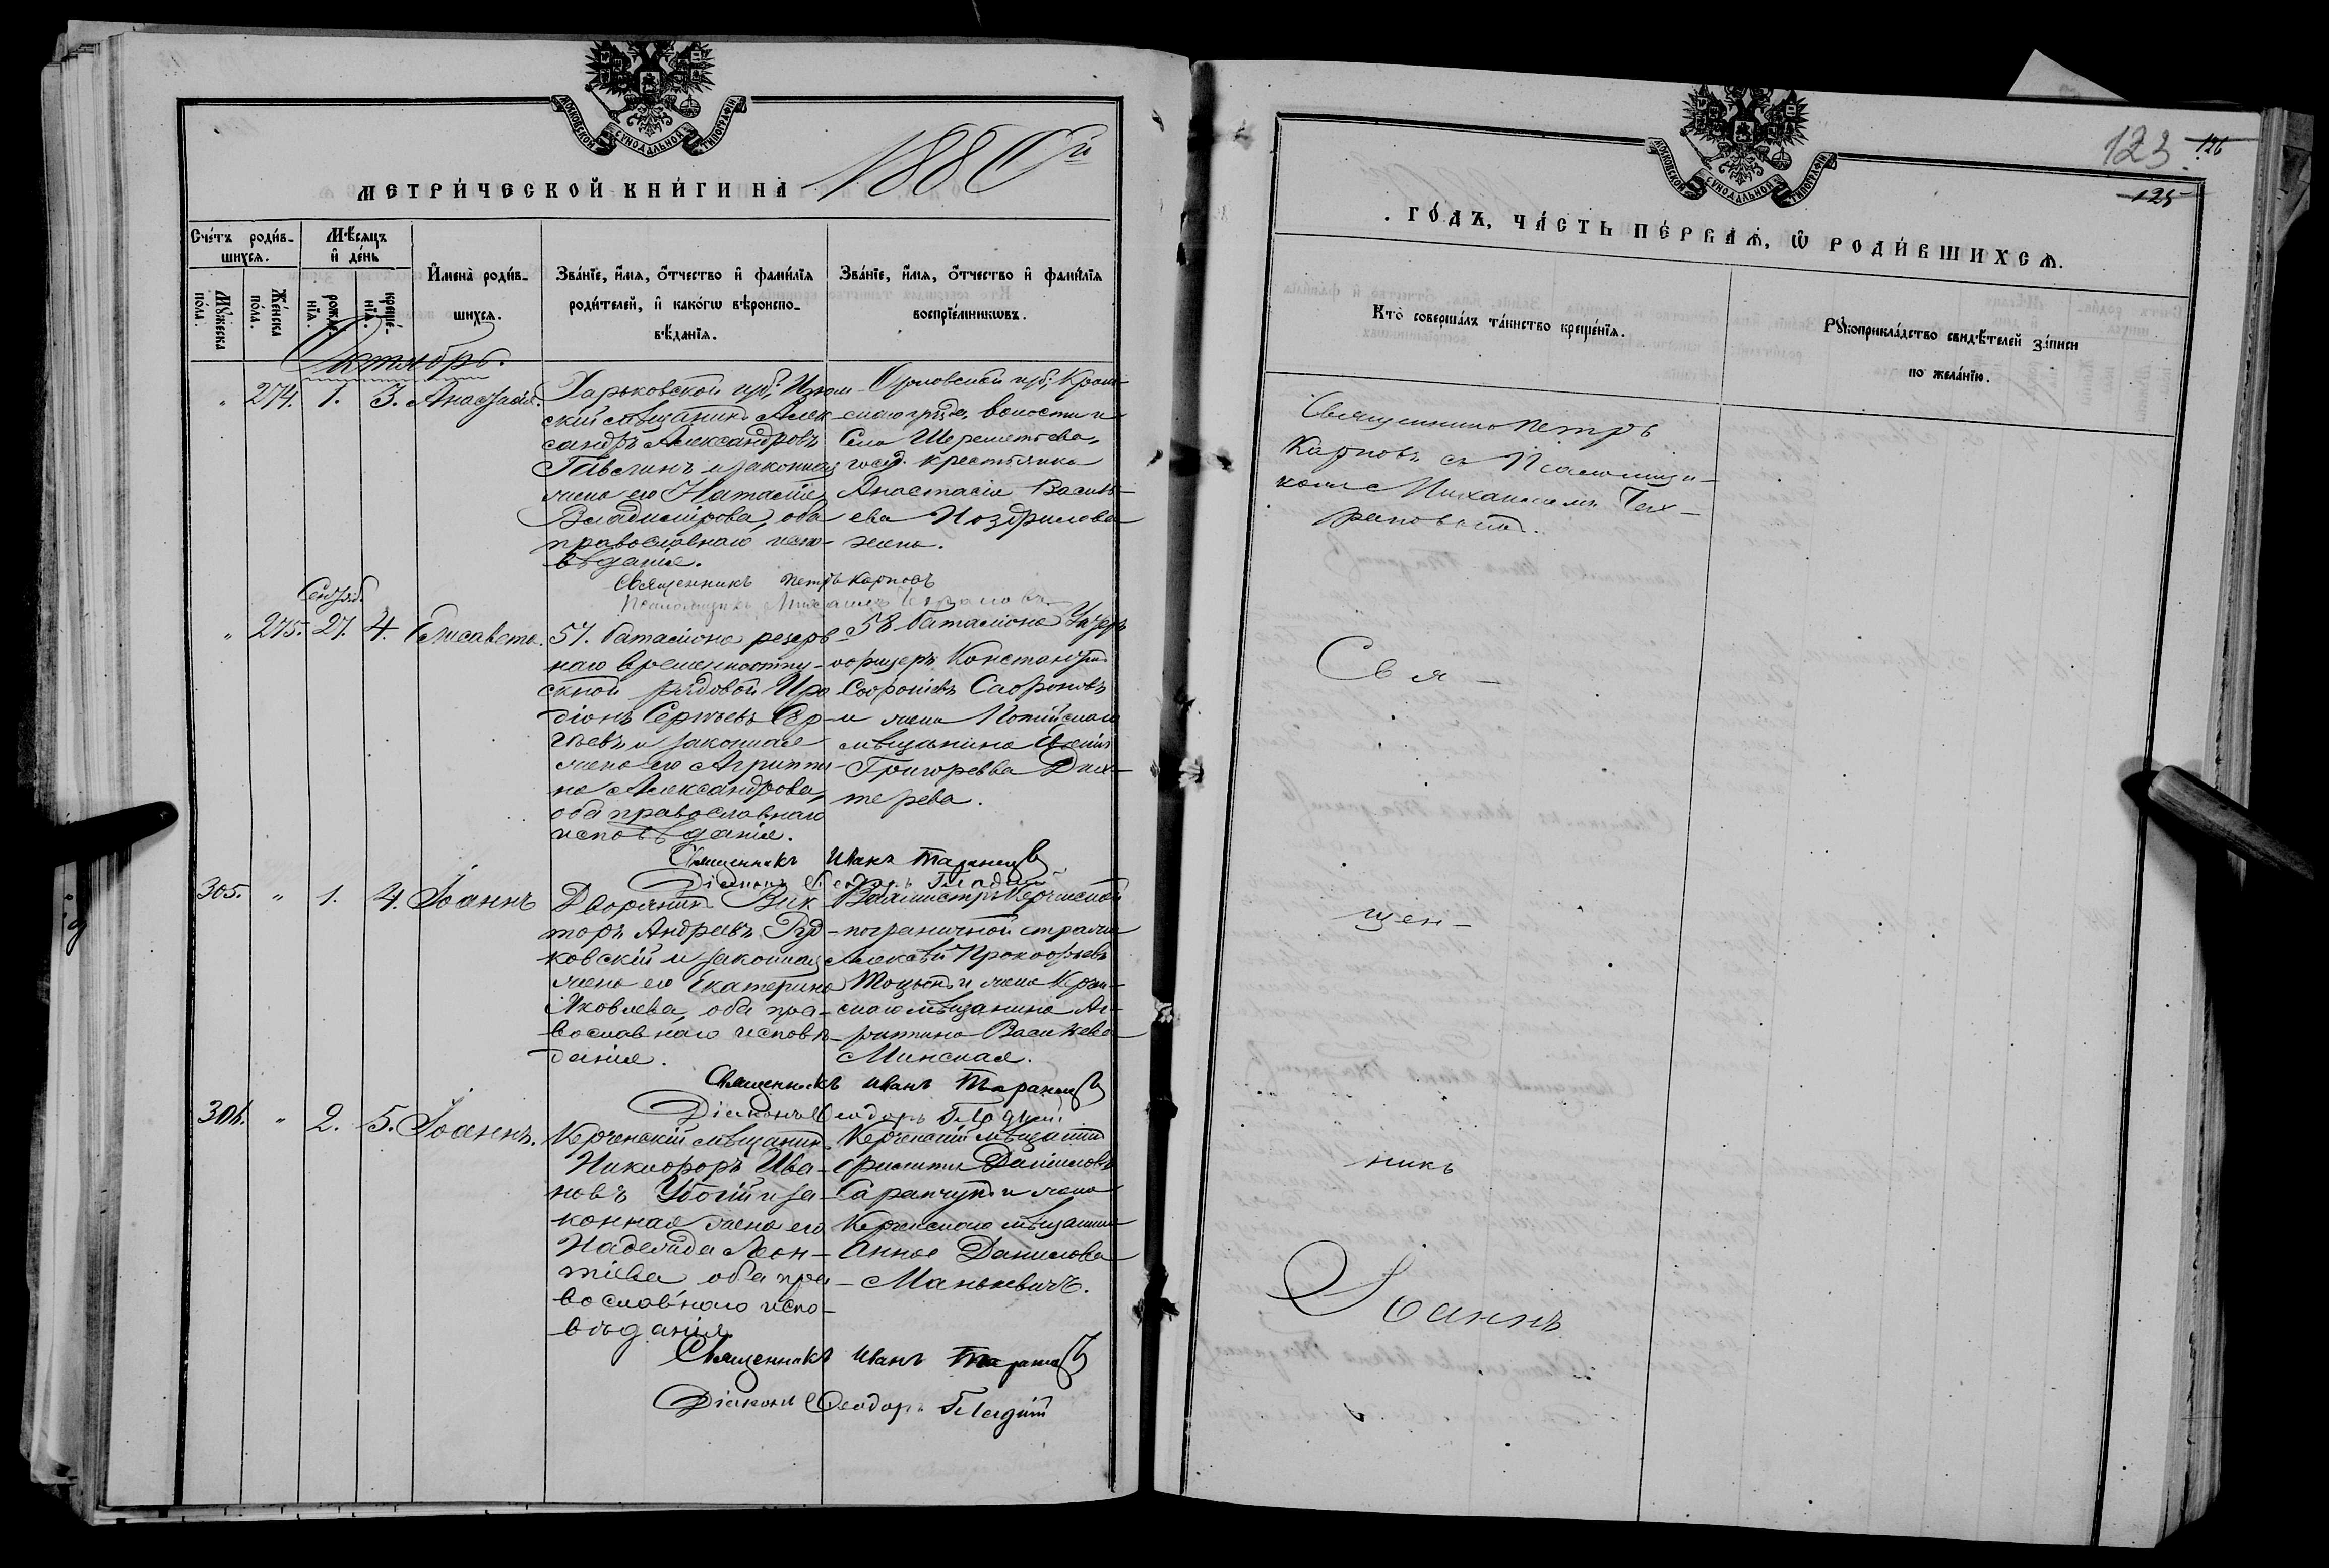 МОСКОВСКОЙ СУНОДАЛЬНОЙ ТИПОГРАФІИ
МЕТРИ́ЧЕСКОЙ КНИ́ГИ НА 1880й
Сче́тъ роди́в-
шихсѧ.
Мꙋ́жеска
по́ла.
Же́нска
по́ла.
Мѣ́сѧцъ
и҆ де́нь
рожде́-
нїѧ.
креще́-
нїѧ.
И҆мена̀ роди́в-
шихсѧ.
Зва́нїе, и҆́мѧ, ѻ҆́тчество и҆ фами́лїѧ
роди́телей, и҆ како́гѡ вѣроиспо-
вѣ́данїѧ.
Зва́нїе, и҆́мѧ, ѻ҆́тчество и҆ фами́лїѧ
воспрїе́мникѡвъ.
Октябрь.
" 274. 1. 3. Анастасія.
Харьковской губ. Изюм-
скій мѣщанинъ Алек-
сандръ Александровъ
и законная
жена его Наталія
Владимірова, оба
православнаго испо-
вѣданія.
Орловской губ. Кром-
скаго уѣзда, волости и
Села Шереметьева,
госуд. крестьянка
Анастасія Василь-
ева Ноздрилова
жена.
Священникъ Петръ Карповъ
Псаломщикъ Михаилъ
Сентяб.
" 275. 27. 4. Елисавета.
57. баталіона резерв-
наго временноотпу-
скной рядовой Иро-
діонъ Сергѣевъ Сер-
гѣевъ и законная
жена его Агриппи-
на Александрова,
оба православнаго
исповѣданія.
58 баталіона Унтеръ
офицеръ Константинъ
Софроніевъ Сафроновъ
и жена
мѣщанина
Григорьева Дих-
терева.
Священникъ Иванъ Таранецъ
Діаконъ Ѳеодоръ Гладкій
305. " 1. 4. Іоаннъ
Дворянинъ Вик-
торъ Андреевъ Руд-
ковскій и законная
жена его Екатерина
Яковлева, оба пра-
вославнаго исповѣ-
данія.
Вахмистръ Керченской
пограничной стражи
Алексѣй Прокофьевъ
и жена Керчен-
скаго мѣщанина
Васильева
Минская.
Священникъ Иванъ Таранецъ
Діаконъ Ѳеодоръ Гладкій
306. " 2. 5. Іоаннъ.
Керченскій мѣщанинъ
Никифоръ Ива-
новъ Убогій и за-
конная жена его
Надежда Леон-
тіева оба пра-
вославнаго испо-
вѣданія
Керченскій мѣщанинъ
Филиппъ Даниловъ
Саранчукъ и жена
Керченскаго мѣщанина
Анна Данилова
Манькевичъ.
Священникъ Иванъ Таранецъ
Діаконъ Ѳеодоръ Гладкій
123 126
125
МОСКОВСКОЙ СУНОДАЛЬНОЙ ТИПОГРАФІИ
ГО́ДЪ, ЧА́СТЬ ПЕ́РВАѦ, Ѡ҆ РОДИ́ВШИХСѦ.
Кто̀ соверша́лъ та́инство креще́нїѧ.
Рꙋкоприкла́дство свидѣ́телей за́писи
по жела́нїю.
Священникъ Петръ
Карповъ съ Псаломщи-
комъ Михаиломъ
Свя-
щен-
никъ
Іоаннъ